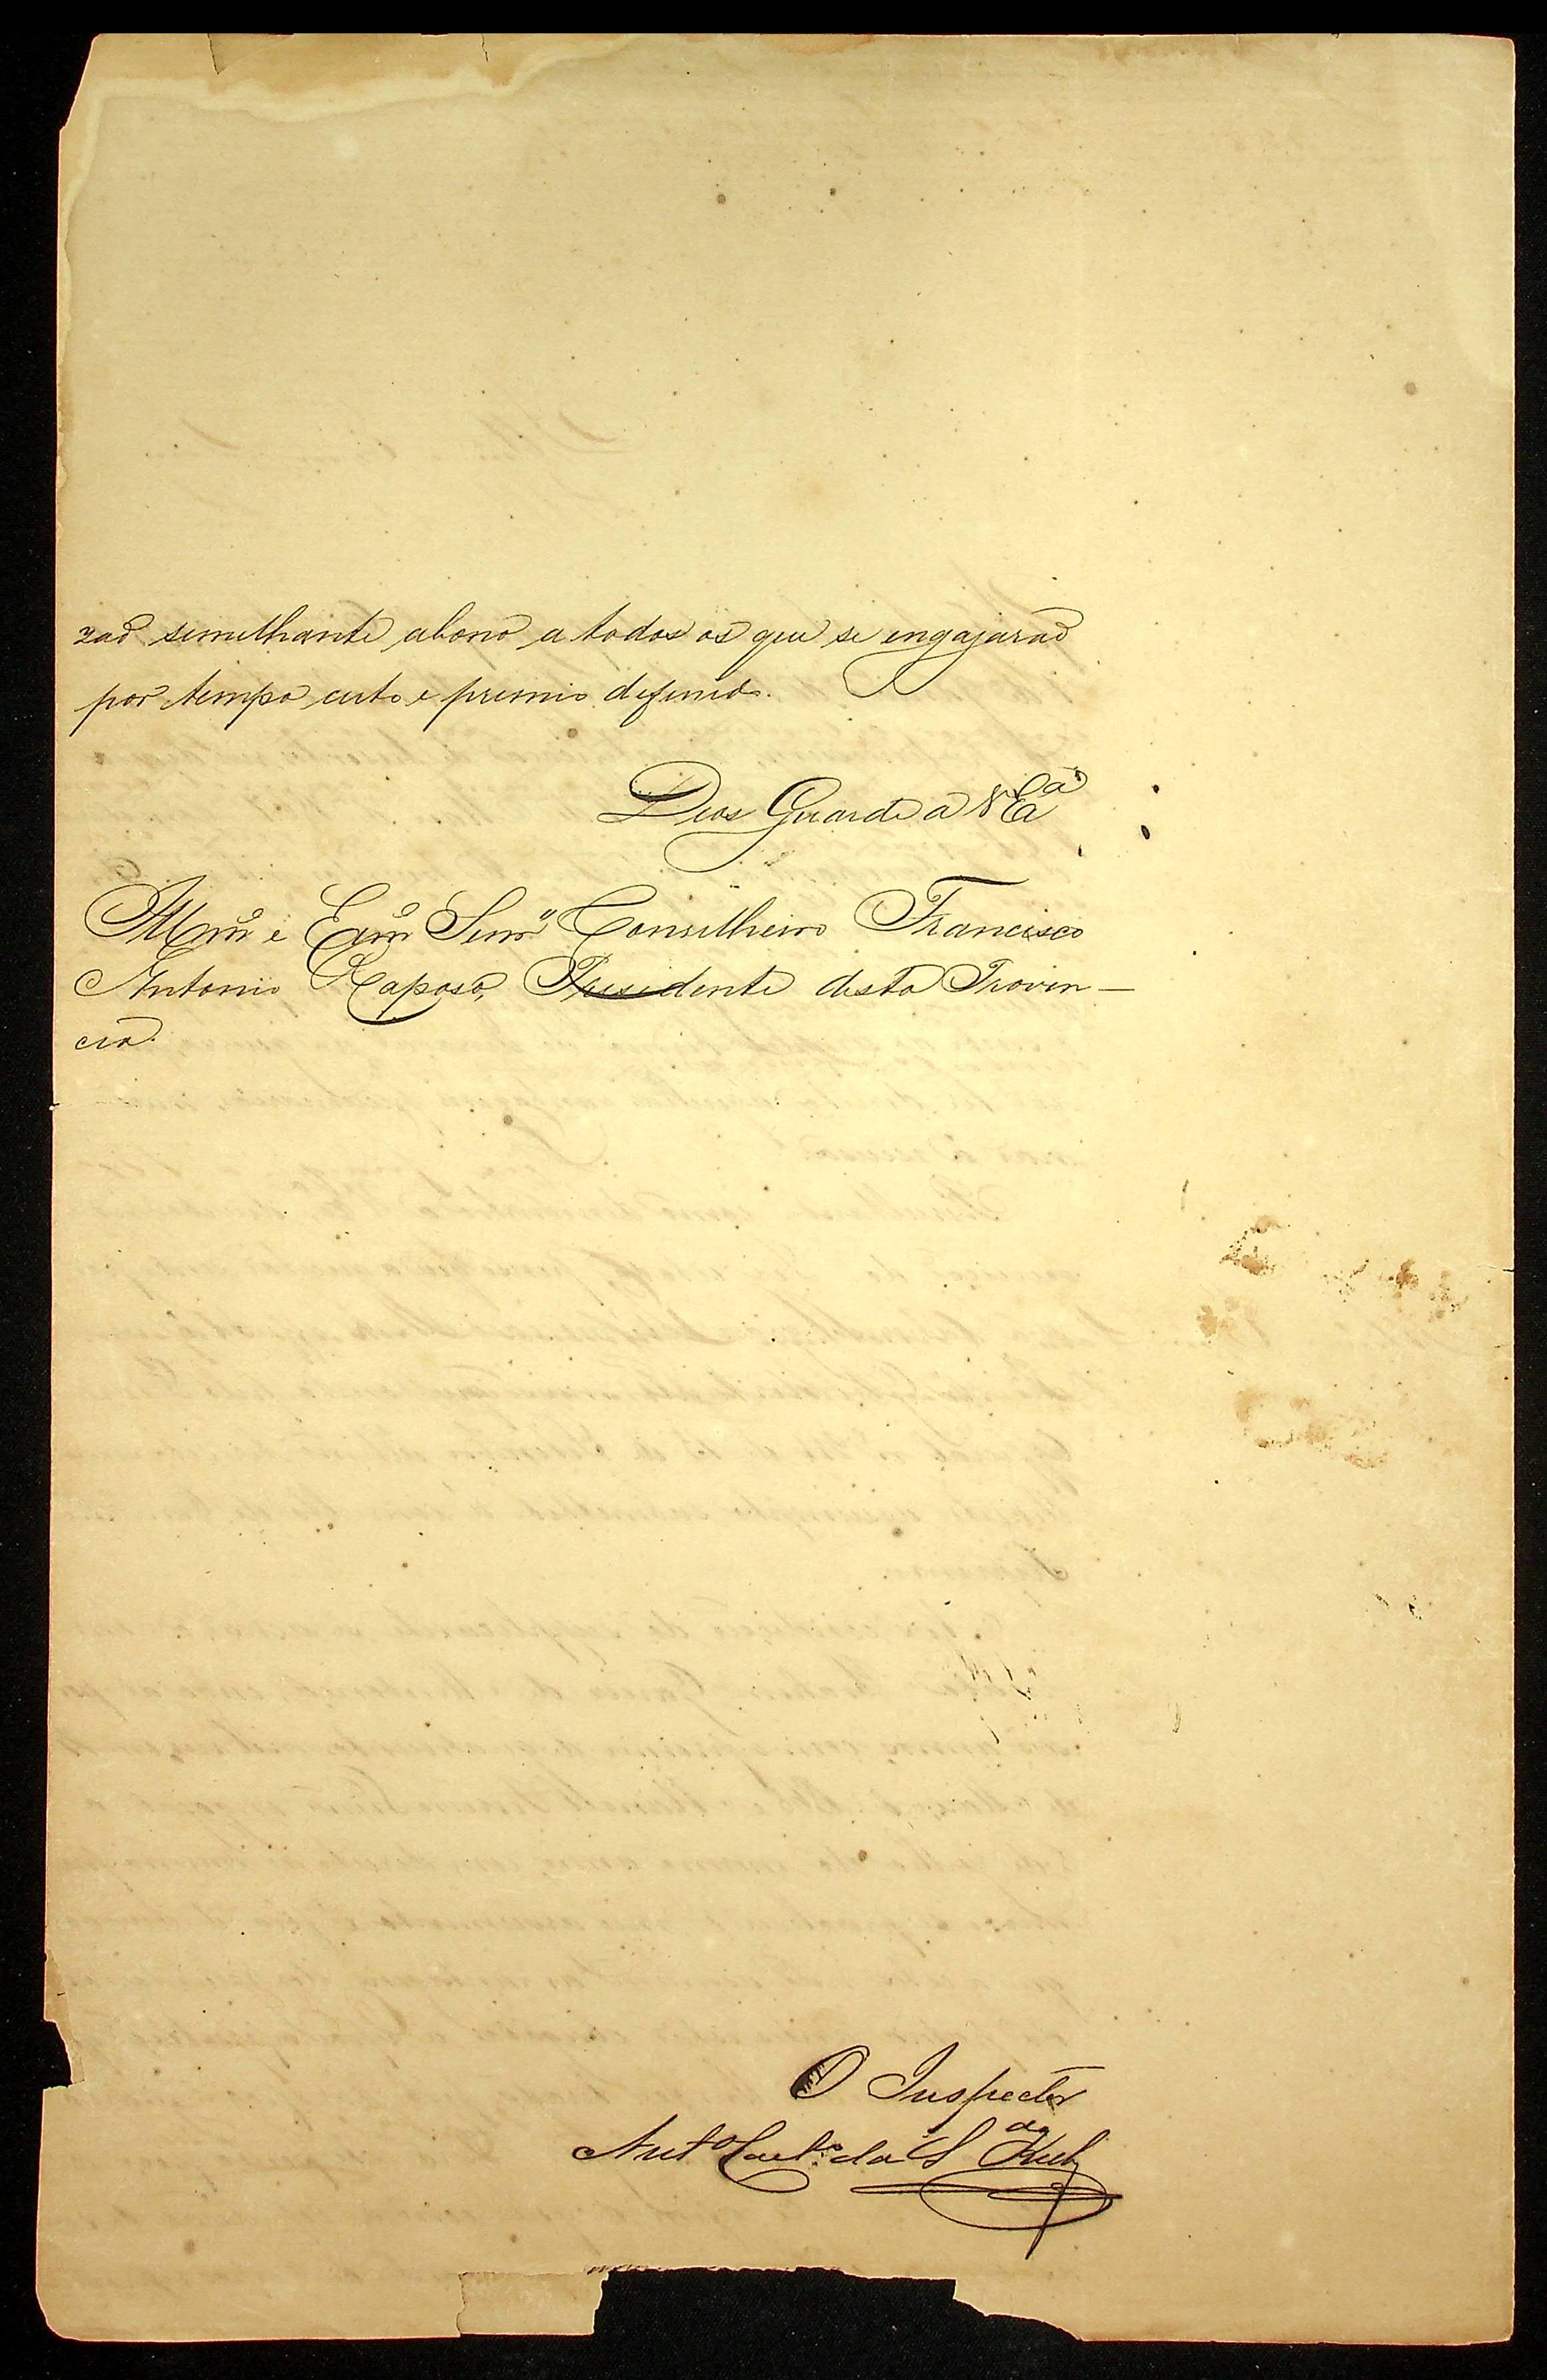 zaõ semelhante abono a todos os que se engajaraõ
por tempo certo e premio definido.
Deos Guarde a V Eª
Illmº e Exmº Senr. Conselheiro Francisco
Antonio Raposo, Presidente desta Provin-
cia.
O Inspector
Antº da Sª